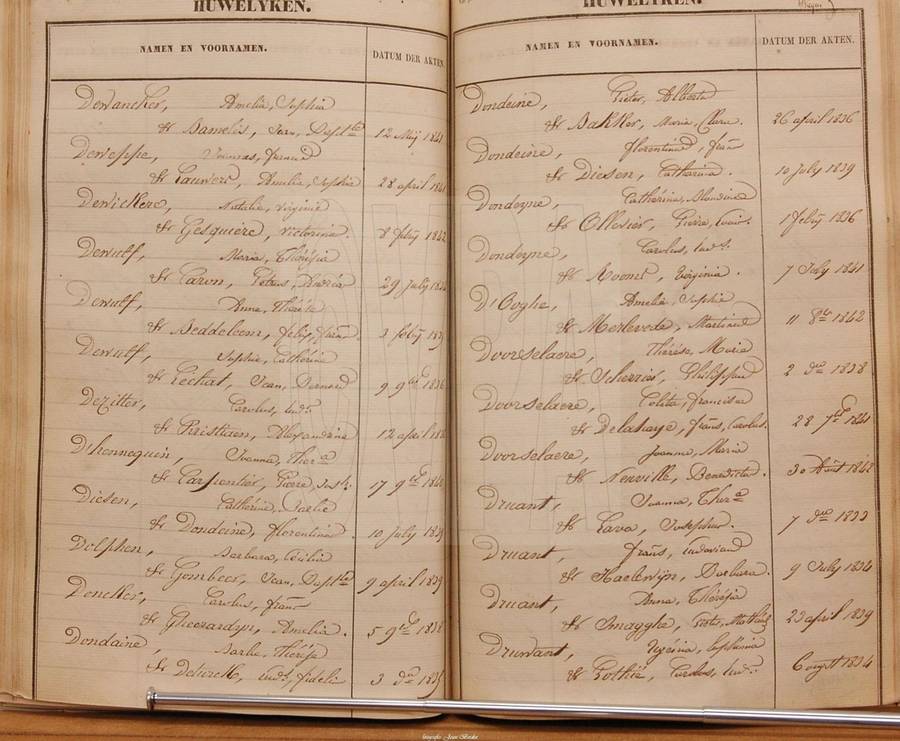 HUWELYKEN.
NAMEN EN VOORNAMEN.
DATUM DER AKTEN.
Dewancker, Amelia, Sophia
& Bamelis, Jean, Bapt^te 12 Meij 1841
Deweppe, Joannes, franc
& Lauwers, Amelia, Sophie 28 april 1841
Dewickere, Natalie, Virginie
& Gesquiere, Victorinus. 8 febry 1842
Dewulf, Maria, Thérésia
& Caron, Petrus, Andréa 29 july
Dewulf, Anna, Thérése
& Beddeleem, felix, fran. 3 febry
Dewulf, Sophie, Cathérine
& Lechat, Jean, Bernard 9 9^bre 1836
Dezitter, Carolus, Lud.
& Kristiaen, Alexandrine 12 april
D'hennequin, Joanna, Ther^a
& Carpentier, Pierre, 17 9^bre 1840
Diesen, Cathérine, Barbe
& Dondeine, florentinus 10 july 1839
Dolphen, Barbara, Cécilia
& Gombeer, Jean, Bapt^te 9 april 1839
Doncker, Carolus, fran^s
& Gheerardyn, Amelia. 5 9^bre 1838
Dondaine, Barbe, Thérése
& Deturck, Lud., fidelis 3 d^re
HUWELYKEN.
NAMEN EN VOORNAMEN.
DATUM DER AKTEN.
Dondeine, Pieter, Alberte
& Bakker, Maria, Clara. 26 april 1836
Dondeine, florentinus, fran
& Diesen, Catharina. 10 july 1839
Dondeyne, Cathérina, Blandina
& Ollevier, Pierre, Louis. 1 febry 1836
Dondeyne, Carolus, Lud.
& Roone, Virginia. 7 July 1841
D'Ooghe, Amelia, Sophie
& Merlevede, Martinus 11 8^bre 1842
Doorselaere, Thérèse, Marie
& Scherrier, Philippus 2 d^re 1838
Doorselaere, Colita, francisca
& Delahaye, frans, Carolus. 28 7^bre 1841
Doorselaere, Joanna, Maria
& Neuville, Benedictus. 30 Aoüt 1842
Druant, Joanna, Ther^a
& Lava, Josephus. 7 d^re 1833
Druant, frans, Ludovicus
& Haelewyn, Barbara. 9 July 1834
Druant, Anna, Thérésia
& Smaggle, Pieter, Mathias 23 april 1839
Druwant,
& Pottié, Carolus, Lud. 6 augst 1834
fotografie Joan Bieke